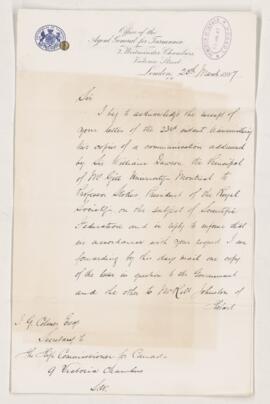 Office of the
Agent General for Tasmania
3 Westminster Chambers
Victoria Street
London, 25th March 1887
Sir
I beg to acknowledge the receipt of
your letter of the 23rd instant transmitting
two copies of a communication addressed
by Sir William Dawson, the Principal
of McGill University Montreal to
Professor Stokes President of the Royal
Society on the subject of Scientific
Federation and in reply to inform that
in accordance with your request I am
forwarding by this day mail one copy
of the letter in question to the Government
and the other to Mr Johnston of
Hobart
J. G. Colmer Esq
Secretary to
The High Commissioner for Canada
9 Victoria Chambers
S.W.